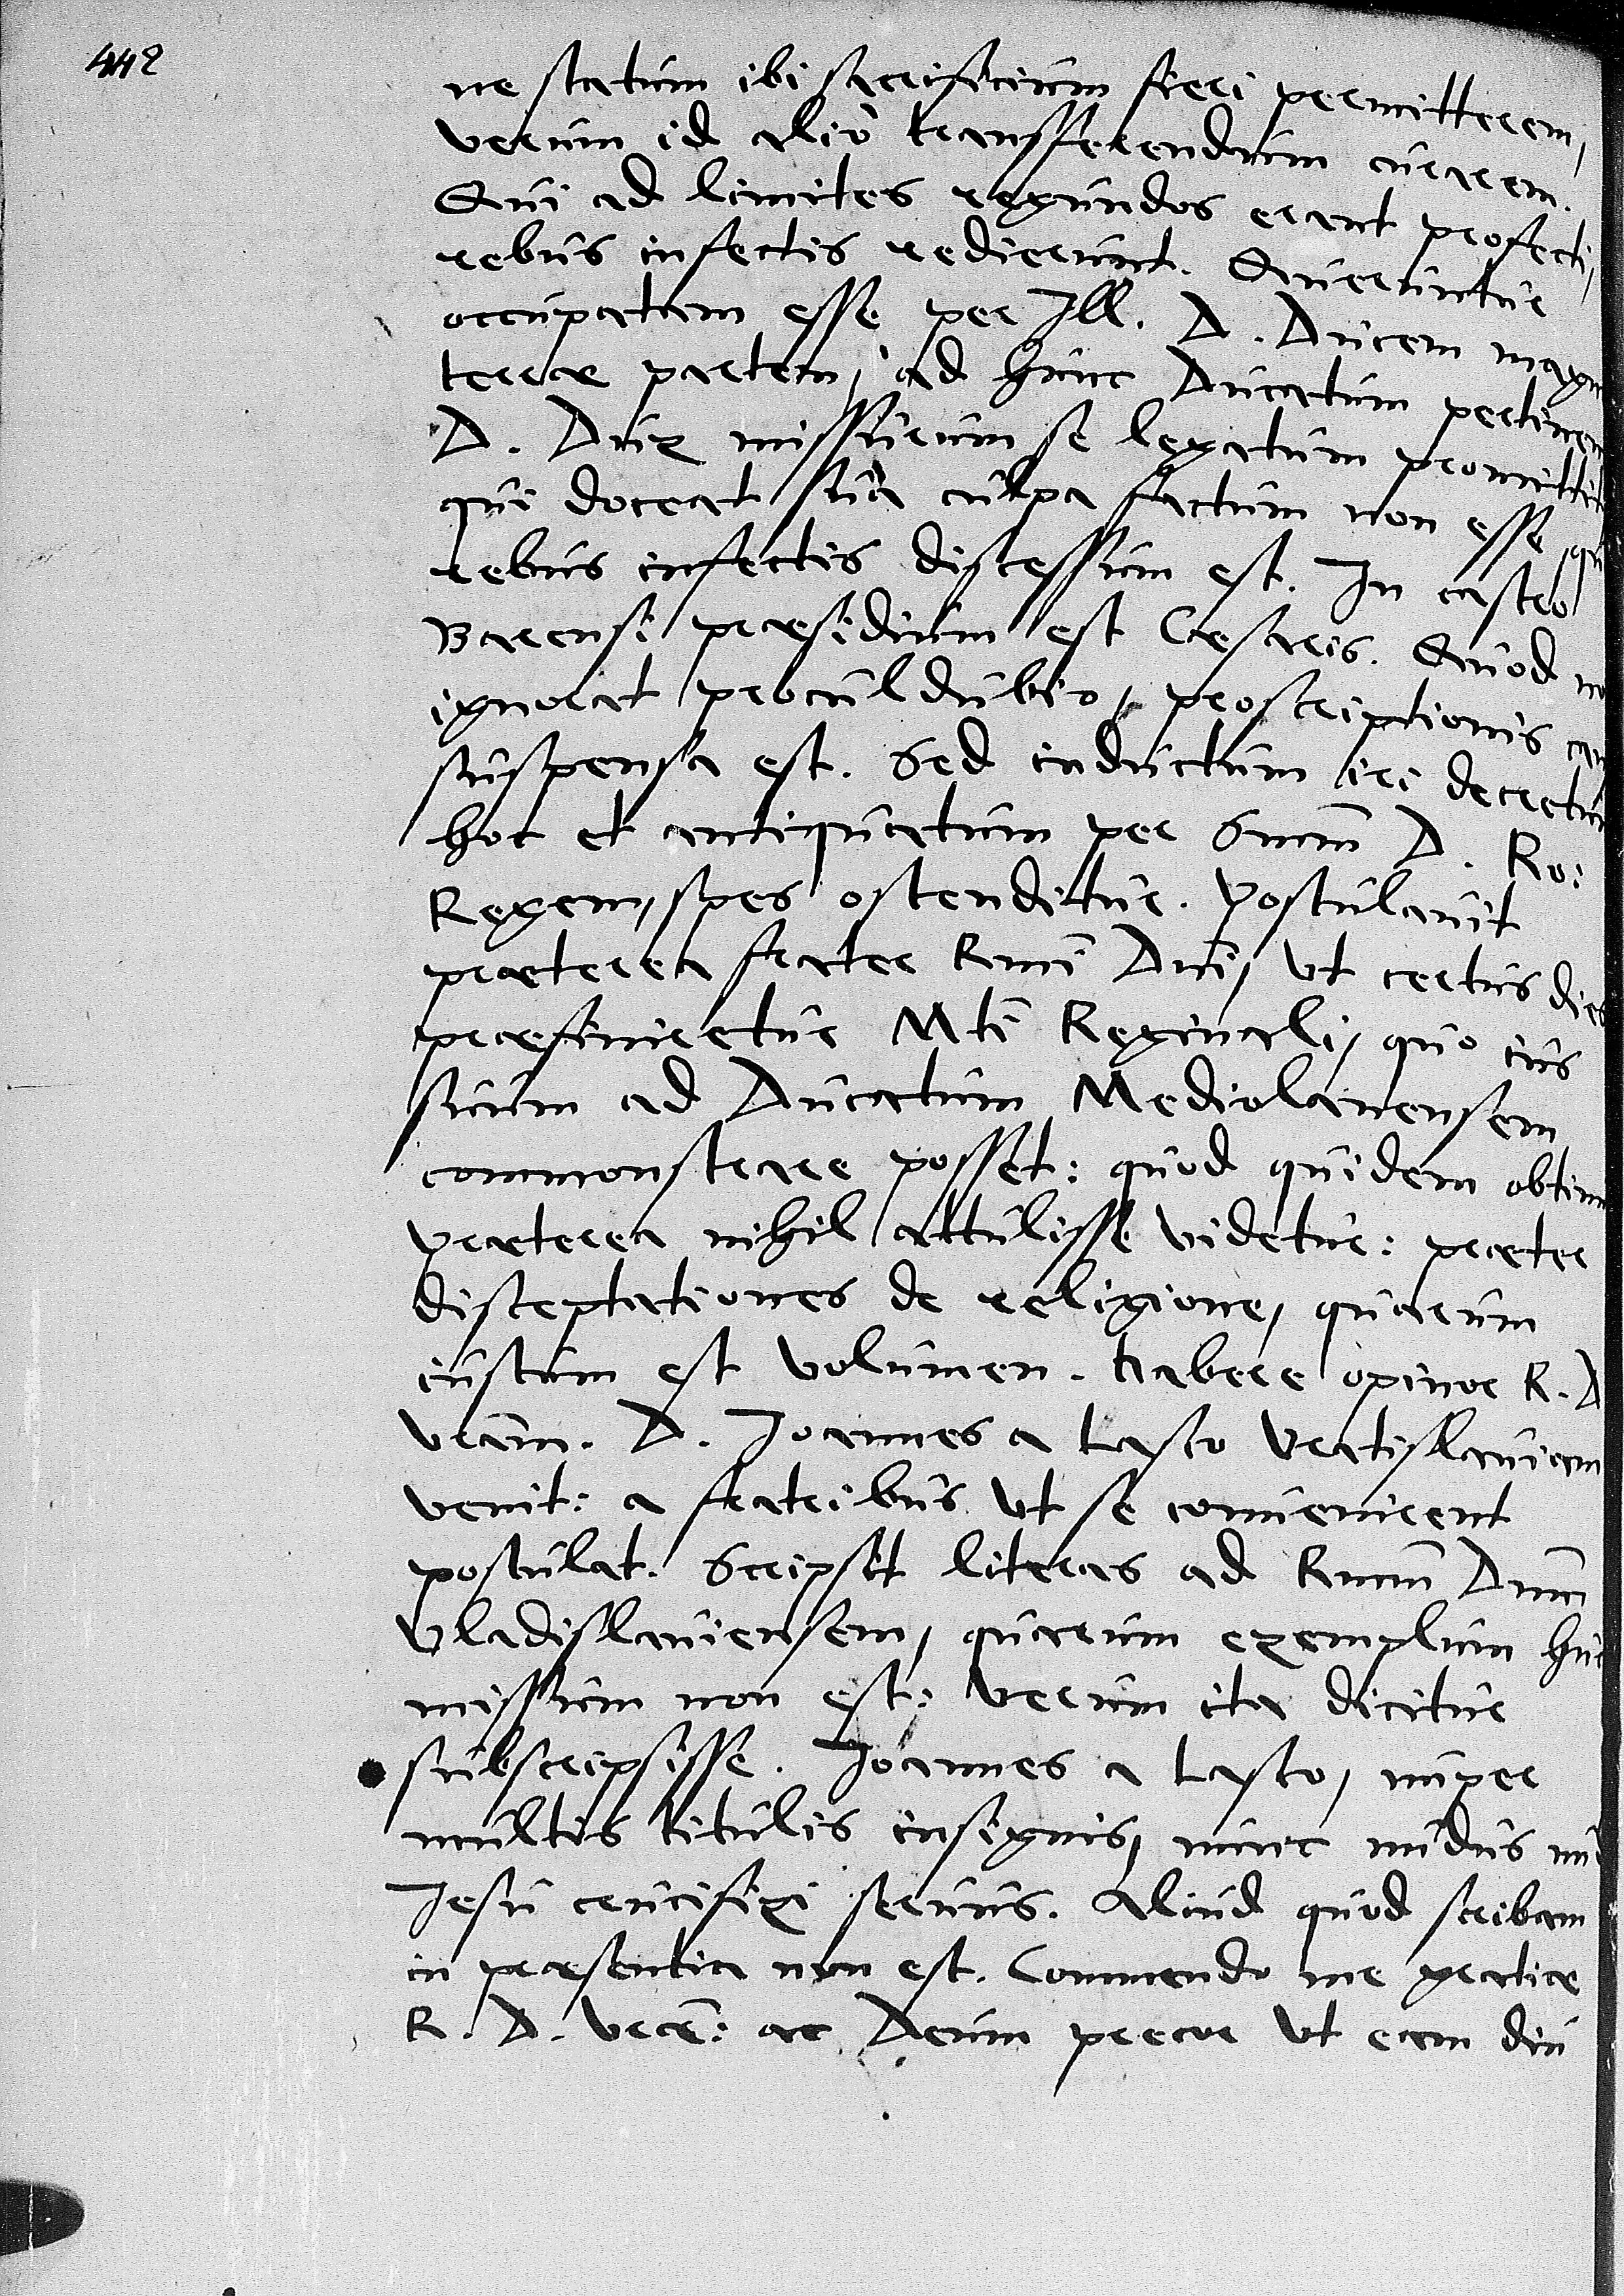 442
ne statum ibi sacrificium fieri permitterem,
verum id alio transferendum curarem.
Qui ad limites regundos erant profecti,
rebus infectis redierunt. Queruntur
occupatam esse per Ill. D. Ducem magn
terrae partem, ad hunc Ducatum pertinen
D. Dux missurum se legatum promittit
qui doceat sua culpa factum non esse, qu
rebus infectis discessum est. In castro
Barensi praesidium est Caesaris. Quod no
ignorat proculdubio, proscriptionis cau
suspensa est. Sed inductum iri decretu
hoc et antiquatum per Smum D. Ro:
Regem, spes ostenditur. Postulavit
praeterea frater Rmi Dni, ut certus dies
praefiniretur Mti Reginali, quo ius
suum ad Ducatum Mediolanensem
commonstrare posset: quod quidem obtinu
Praeterea nihil attulisse videtur: praeter
disceptationes de religione, quarum
iustum est volumen. Habere opinor R. D
Vram. D. Joannes a Lasco Vratislaviam
venit: a fratribus ut se convenirent
postulat. Scripsit literas ad Rmum Dnum
Vladislaviensem, quarum exemplum huc
missum non est: verum ita dicitur
subscripsisse. Joannes a Lasco, nuper
multis titulis insignis, nunc nudus nu
Jesu crucifixi servus. Aliud quod scribam
in praesentia non est. Commendo me gratiae
R. D. Vrae: ac Deum precor ut eam diu